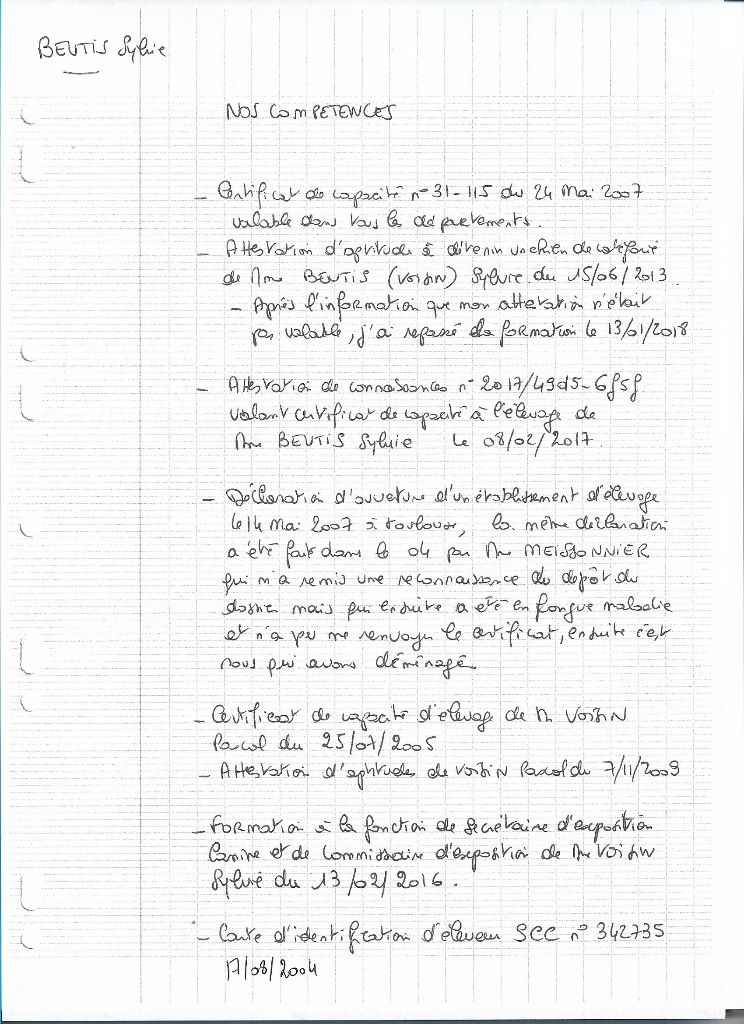 BEUTIS Sylvie
NOS COMPETENCES
- Certificat de capacité n° 31-115 du 24 Mai 2007
valable dans tous les départements.
- Attestation d'aptitude à détenir un chien de catégorie
de Mme BEUTIS (VOISIN) Sylvie du 15/06/2013
- Après l'information que mon attestation n'était
pas valable, j'ai repassé la formation le 13/01/2018
- Attestation de connaissances n° 2017/49d5-6f5f
valant certificat de capacité à l'élevage de
Mme BEUTIS Sylvie le 08/02/2017.
- Déclaration d'ouverture d'un établissement d'élevage
le 14 Mai 2007 à Toulouse, la même déclaration
a été fait dans le 04 par Mme MEISSONNIER
qui m'a remis une reconnaissance de dépôt du
dossier mais qui ensuite a été en longue maladie
et n'a pu me renvoyer le certificat, ensuite c'est
nous qui avons déménagé.
- Certificat de capacité d'élevage de M. VOISIN
Pascal du 25/07/2005
- Attestation d'aptitudes de VOISIN Pascal du 7/11/2009
- Formation à la fonction de Secrétaire d'exposition
Canine et de Commissaire d'exposition de Mme VOISIN
Sylvie du 13/02/2016.
- Carte d'identification d'éleveur SCC n° 342735
17/08/2004